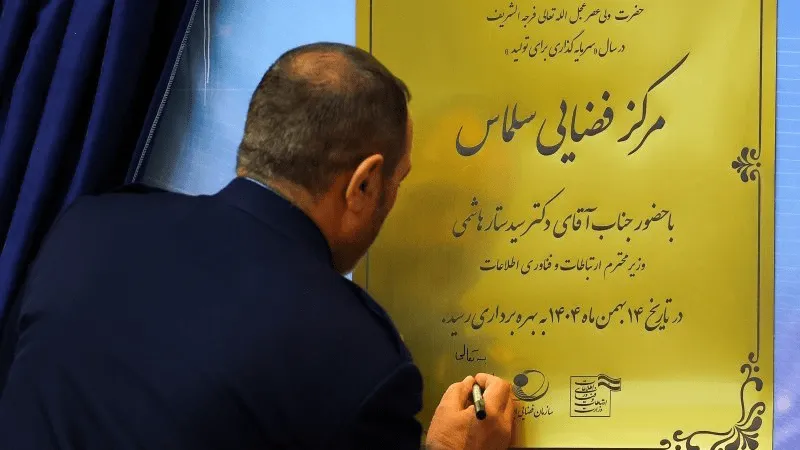 حضرت ولی عصر عجل الله تعالی فرجه الشریف
در سال «سرمایه گذاری برای تولید»
مرکز فضایی سلماس
با حضور جناب آقای دکتر سید ستار هاشمی
وزیر محترم ارتباطات و فناوری اطلاعات
در تاریخ ۱۴ بهمن ماه ۱۴۰۴ به بهره برداری رسید.
بسمه تعالی
سازمان فضایی